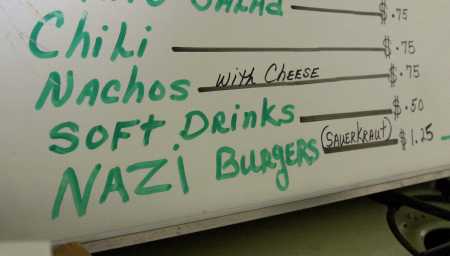 SALAD $.75
CHiLi $.75
NACHOS with CHEESE $.75
SOFT DRiNKS $.50
NAZI BURGERS (SAUERKRAUT) $1.25